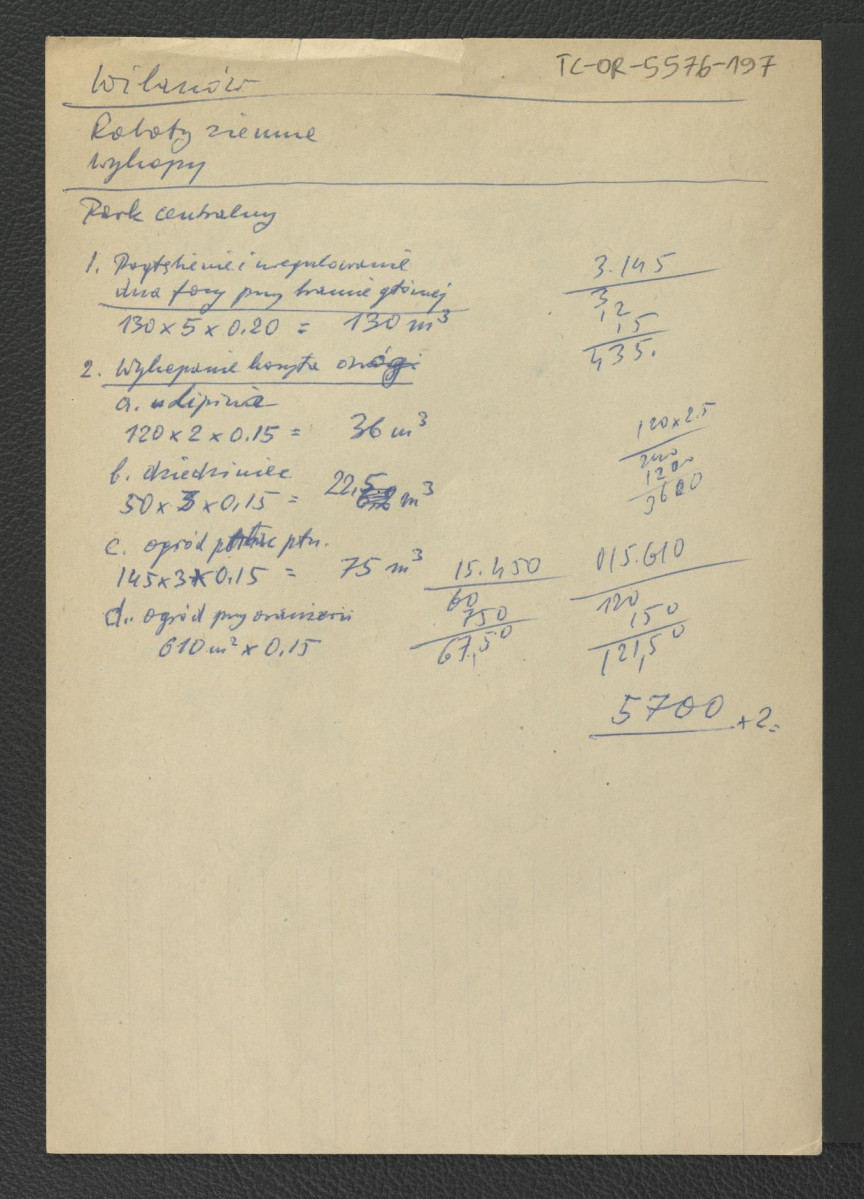 TC-OR-5576-197
Wilanów
Roboty ziemne
Wykopy
Park centralny
1. Pogłębienie i uregulowanie
dna fosy przy bramie głównej
130 x 5 x 0.20 = 130 m³
2. Wykopanie koryta
a.
120 x 2 x 0.15 = 36 m³
b. dziedziniec
50 x 3 x 0,15 = 22,5 m³
c. ogród płn.
145 x 3 x 0.15 = 75 m³
d. ogród przy oranżerii
610 m² x 0.15
3.145
3
12
15
435.
120 x 2.5
240
1200
3600
15.450
60
750
67,50
015.610
120
150
121,50
5700 x 2 =